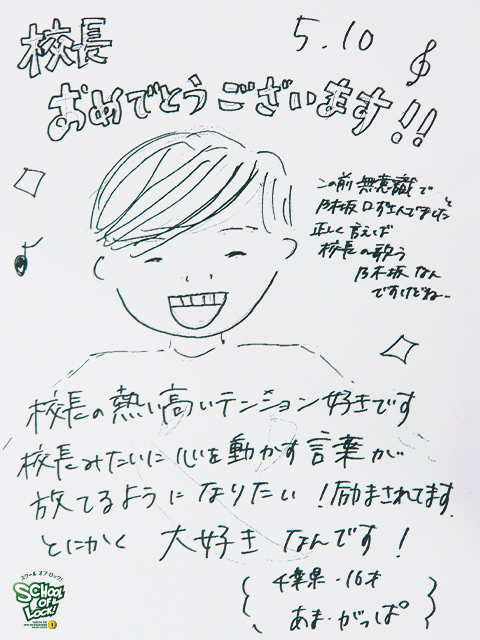 校長
5.10
おめでとうございます!!
この前 無意識で
乃木坂口ずさんでました
正しく言えば
校長の歌う
乃木坂なん
ですけどね…
校長の熱い高いテンション好きです
校長みたいに心を動かす言葉が
放てるようになりたい!励まされてます
とにかく 大好き なんです!
千葉県・16才
あま・がっぱ
スクール オブ ロック!
SCHOOL
OF
LOCK!